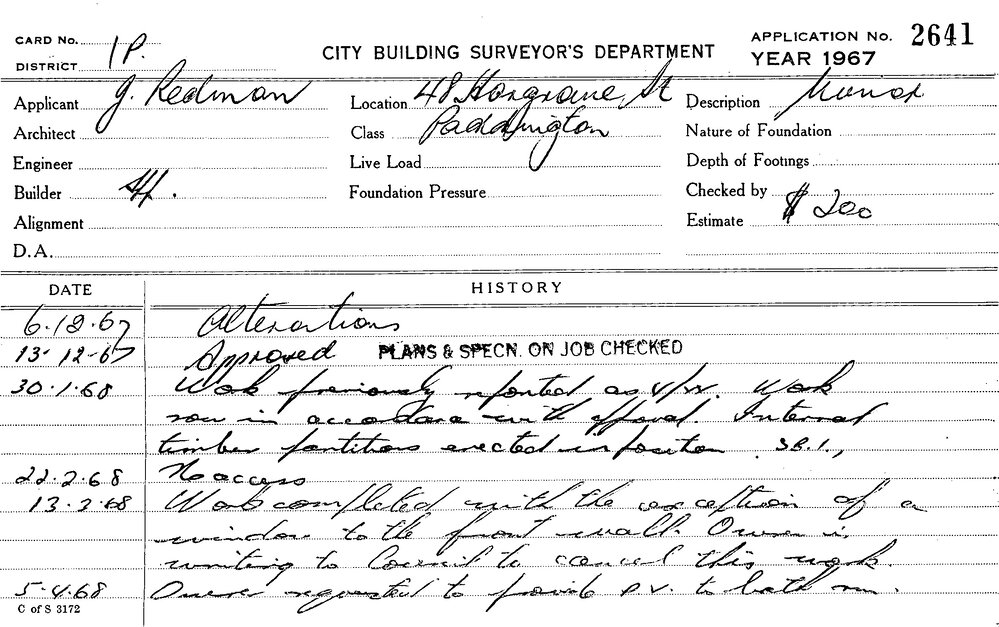 CARD No. 1P.
DISTRICT
CITY BUILDING SURVEYOR'S DEPARTMENT
APPLICATION No. 2641
YEAR 1967
Applicant J. Redman
Location 48 Hargrave St
Description Minor
Architect
Class Paddington
Nature of Foundation
Engineer
Live Load
Depth of Footings
Builder
Foundation Pressure
Checked by
Alignment
Estimate $ 200
D.A.
DATE HISTORY
6.12.67 Alterations
13-12-67 Approved PLANS & SPECN. ON JOB CHECKED
30.1.68 Work previously reported as Work
now in accordance with approval. Internal
timber partitions erected in position
22.2.68 No access
13.3.68 Work completed with the exception of a
window to the front wall. Owner is
writing to Council to cancel this work.
5.4.68 Owner requested to provide P.V. to bath rm.
C of S 3172